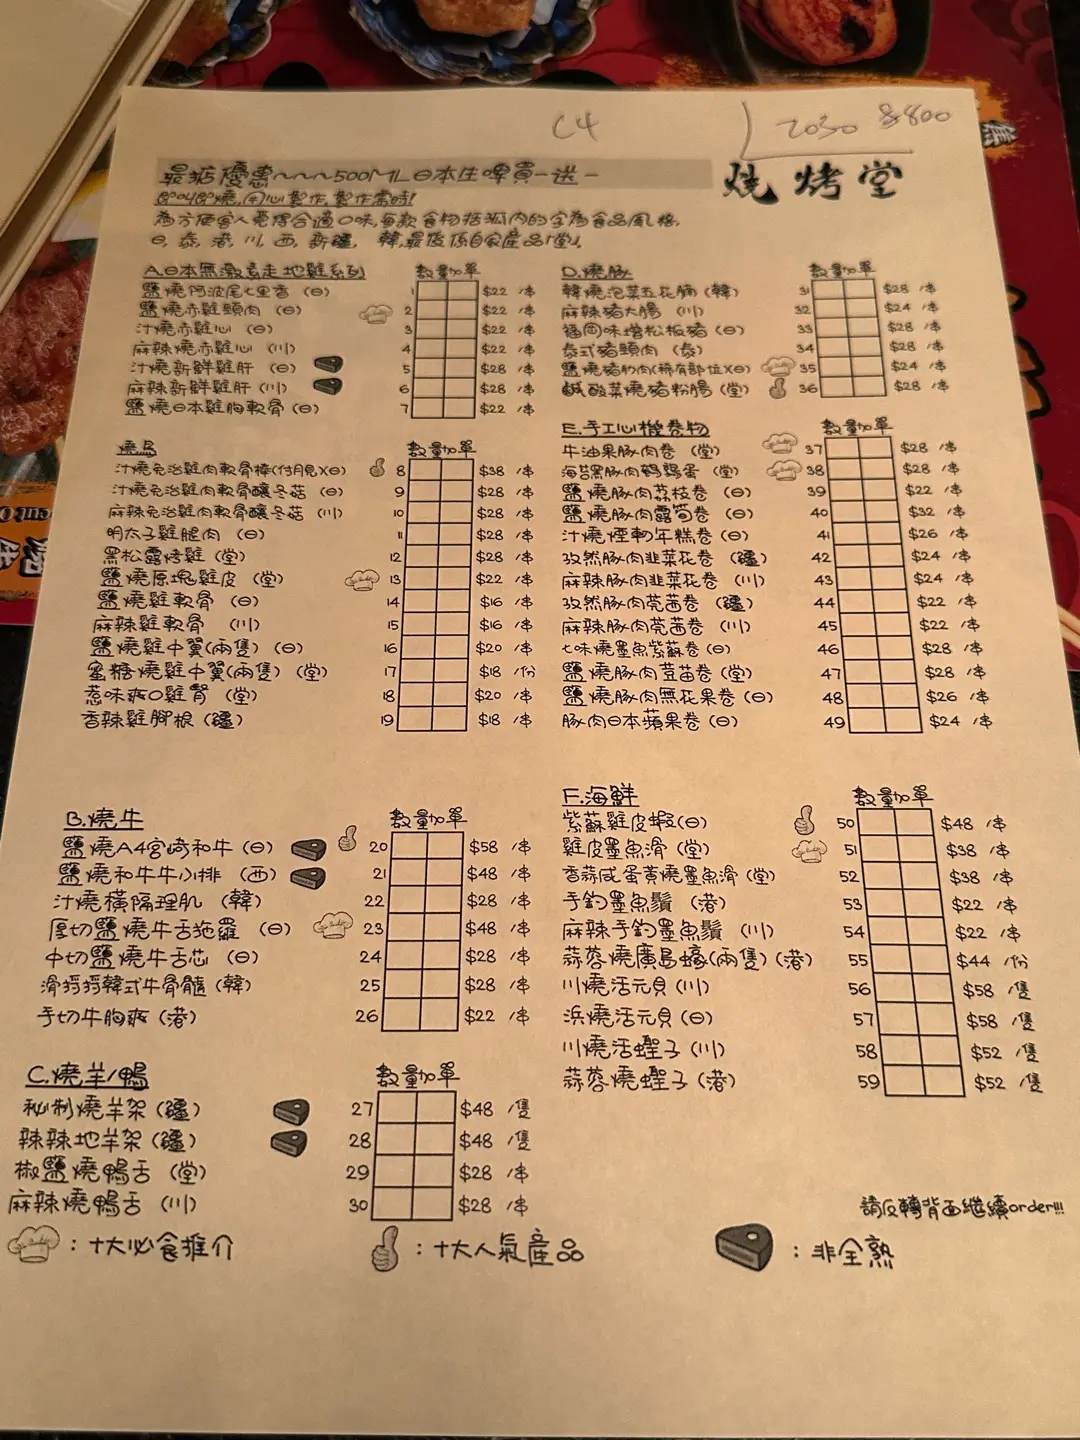 C4
2030 &800
最抵優惠~~~500ML日本生啤買一送一
燒烤堂
即叫即燒,用心製作,製作需時!
為方便客人覓得合適口味,每款食物括弧內的字為食品風格,
日, 泰, 港, 川, 西, 新疆, 韓,最後係自家產品「堂」.
A.日本無激素走地雞系列 數量加單
鹽燒阿波尾七里香 (日) 1 $22 /串
鹽燒赤雞頸肉 (日) 2 $22 /串
汁燒赤雞心 (日) 3 $22 /串
麻辣燒赤雞心 (川) 4 $22 /串
汁燒新鮮雞肝 (日) 5 $28 /串
麻辣新鮮雞肝 (川) 6 $28 /串
鹽燒日本雞胸軟骨 (日) 7 $22 /串
燒鳥 數量加單
汁燒免治雞肉軟骨棒(付月見)(日) 8 $38 /串
汁燒免治雞肉軟骨釀冬菇 (日) 9 $28 /串
麻辣免治雞肉軟骨釀冬菇 (川) 10 $28 /串
明太子雞腿肉 (日) 11 $28 /串
黑松露烤雞 (堂) 12 $28 /串
鹽燒原塊雞皮 (堂) 13 $22 /串
鹽燒雞軟骨 (日) 14 $16 /串
麻辣雞軟骨 (川) 15 $16 /串
鹽燒雞中翼(兩隻) (日) 16 $20 /串
蜜糖燒雞中翼(兩隻) (堂) 17 $18 /份
惹味爽口雞腎 (堂) 18 $20 /串
香辣雞腳根 (疆) 19 $18 /串
B.燒牛 數量加單
鹽燒A4宮崎和牛 (日) 20 $58 /串
鹽燒和牛牛小排 (西) 21 $48 /串
汁燒橫隔理肌 (韓) 22 $28 /串
厚切鹽燒牛舌施羅 (日) 23 $48 /串
中切鹽燒牛舌芯 (日) 24 $28 /串
滑捋捋韓式牛骨髓 (韓) 25 $28 /串
手切牛胸爽 (港) 26 $22 /串
C.燒羊/鴨 數量加單
秘制燒羊架 (疆) 27 $48 /隻
辣辣地羊架 (疆) 28 $48 /隻
椒鹽燒鴨舌 (堂) 29 $28 /串
麻辣燒鴨舌 (川) 30 $28 /串
D.燒豚 數量加單
韓燒泡菜五花腩 (韓) 31 $28 /串
麻辣豬大腸 (川) 32 $24 /串
福岡味增松板豬 (日) 33 $28 /串
泰式豬頸肉 (泰) 34 $28 /串
鹽燒豬肋肉(稀有部位)(日) 35 $24 /串
鹹酸菜燒豬粉腸 (堂) 36 $28 /串
E.手工心機卷物 數量加單
牛油果豚肉卷 (堂) 37 $28 /串
海苔黑豚肉鵪鶉蛋 (堂) 38 $28 /串
鹽燒豚肉荔枝卷 (日) 39 $22 /串
鹽燒豚肉露筍卷 (日) 40 $32 /串
汁燒煙肉年糕卷 (日) 41 $26 /串
孜然豚肉韭菜花卷 (疆) 42 $24 /串
麻辣豚肉韭菜花卷 (川) 43 $24 /串
孜然豚肉芫茜卷 (疆) 44 $22 /串
麻辣豚肉芫茜卷 (川) 45 $22 /串
七味燒墨魚紫蘇卷 (日) 46 $28 /串
鹽燒豚肉萱苗卷 (堂) 47 $28 /串
鹽燒豚肉無花果卷 (日) 48 $26 /串
豚肉日本蘋果卷 (日) 49 $24 /串
F.海鮮 數量加單
紫蘇雞皮蝦(日) 50 $48 /串
雞皮墨魚滑 (堂) 51 $38 /串
香蒜咸蛋黃燒墨魚滑 (堂) 52 $38 /串
手釣墨魚鬚 (港) 53 $22 /串
麻辣手釣墨魚鬚 (川) 54 $22 /串
蒜蓉燒廣島蠔(兩隻) (港) 55 $44 /份
川燒活元貝 (川) 56 $58 /隻
浜燒活元貝 (日) 57 $58 /隻
川燒活蟶子 (川) 58 $52 /隻
蒜蓉燒蟶子 (港) 59 $52 /隻
請反轉背面繼續order!!!
:十大必食推介
:十大人氣產品
:非全熟